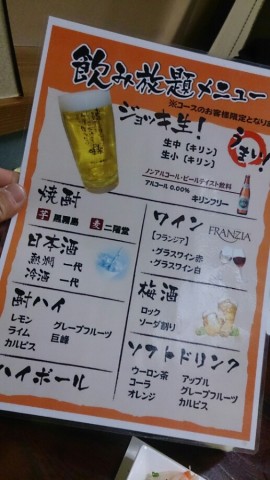 飲み放題メニュー
※コースのお客様限定となり
ジョッキ生!
うまい!
生中(キリン)
生小(キリン)
ノンアルコール・ビールテイスト飲料
アルコール 0.00%
キリンフリー
焼酎
芋 黒霧島 麦 二階堂
日本酒
熱燗 一代
冷酒 一代
酎ハイ
レモン グレープフルーツ
ライム 巨峰
カルピス
ハイボール
ワイン
【フランジア】
FRANZIA
・グラスワイン赤
・グラスワイン白
梅酒
ロック
ソーダ割り
ソフトドリンク
ウーロン茶 アップル
コーラ グレープフルーツ
オレンジ カルピス